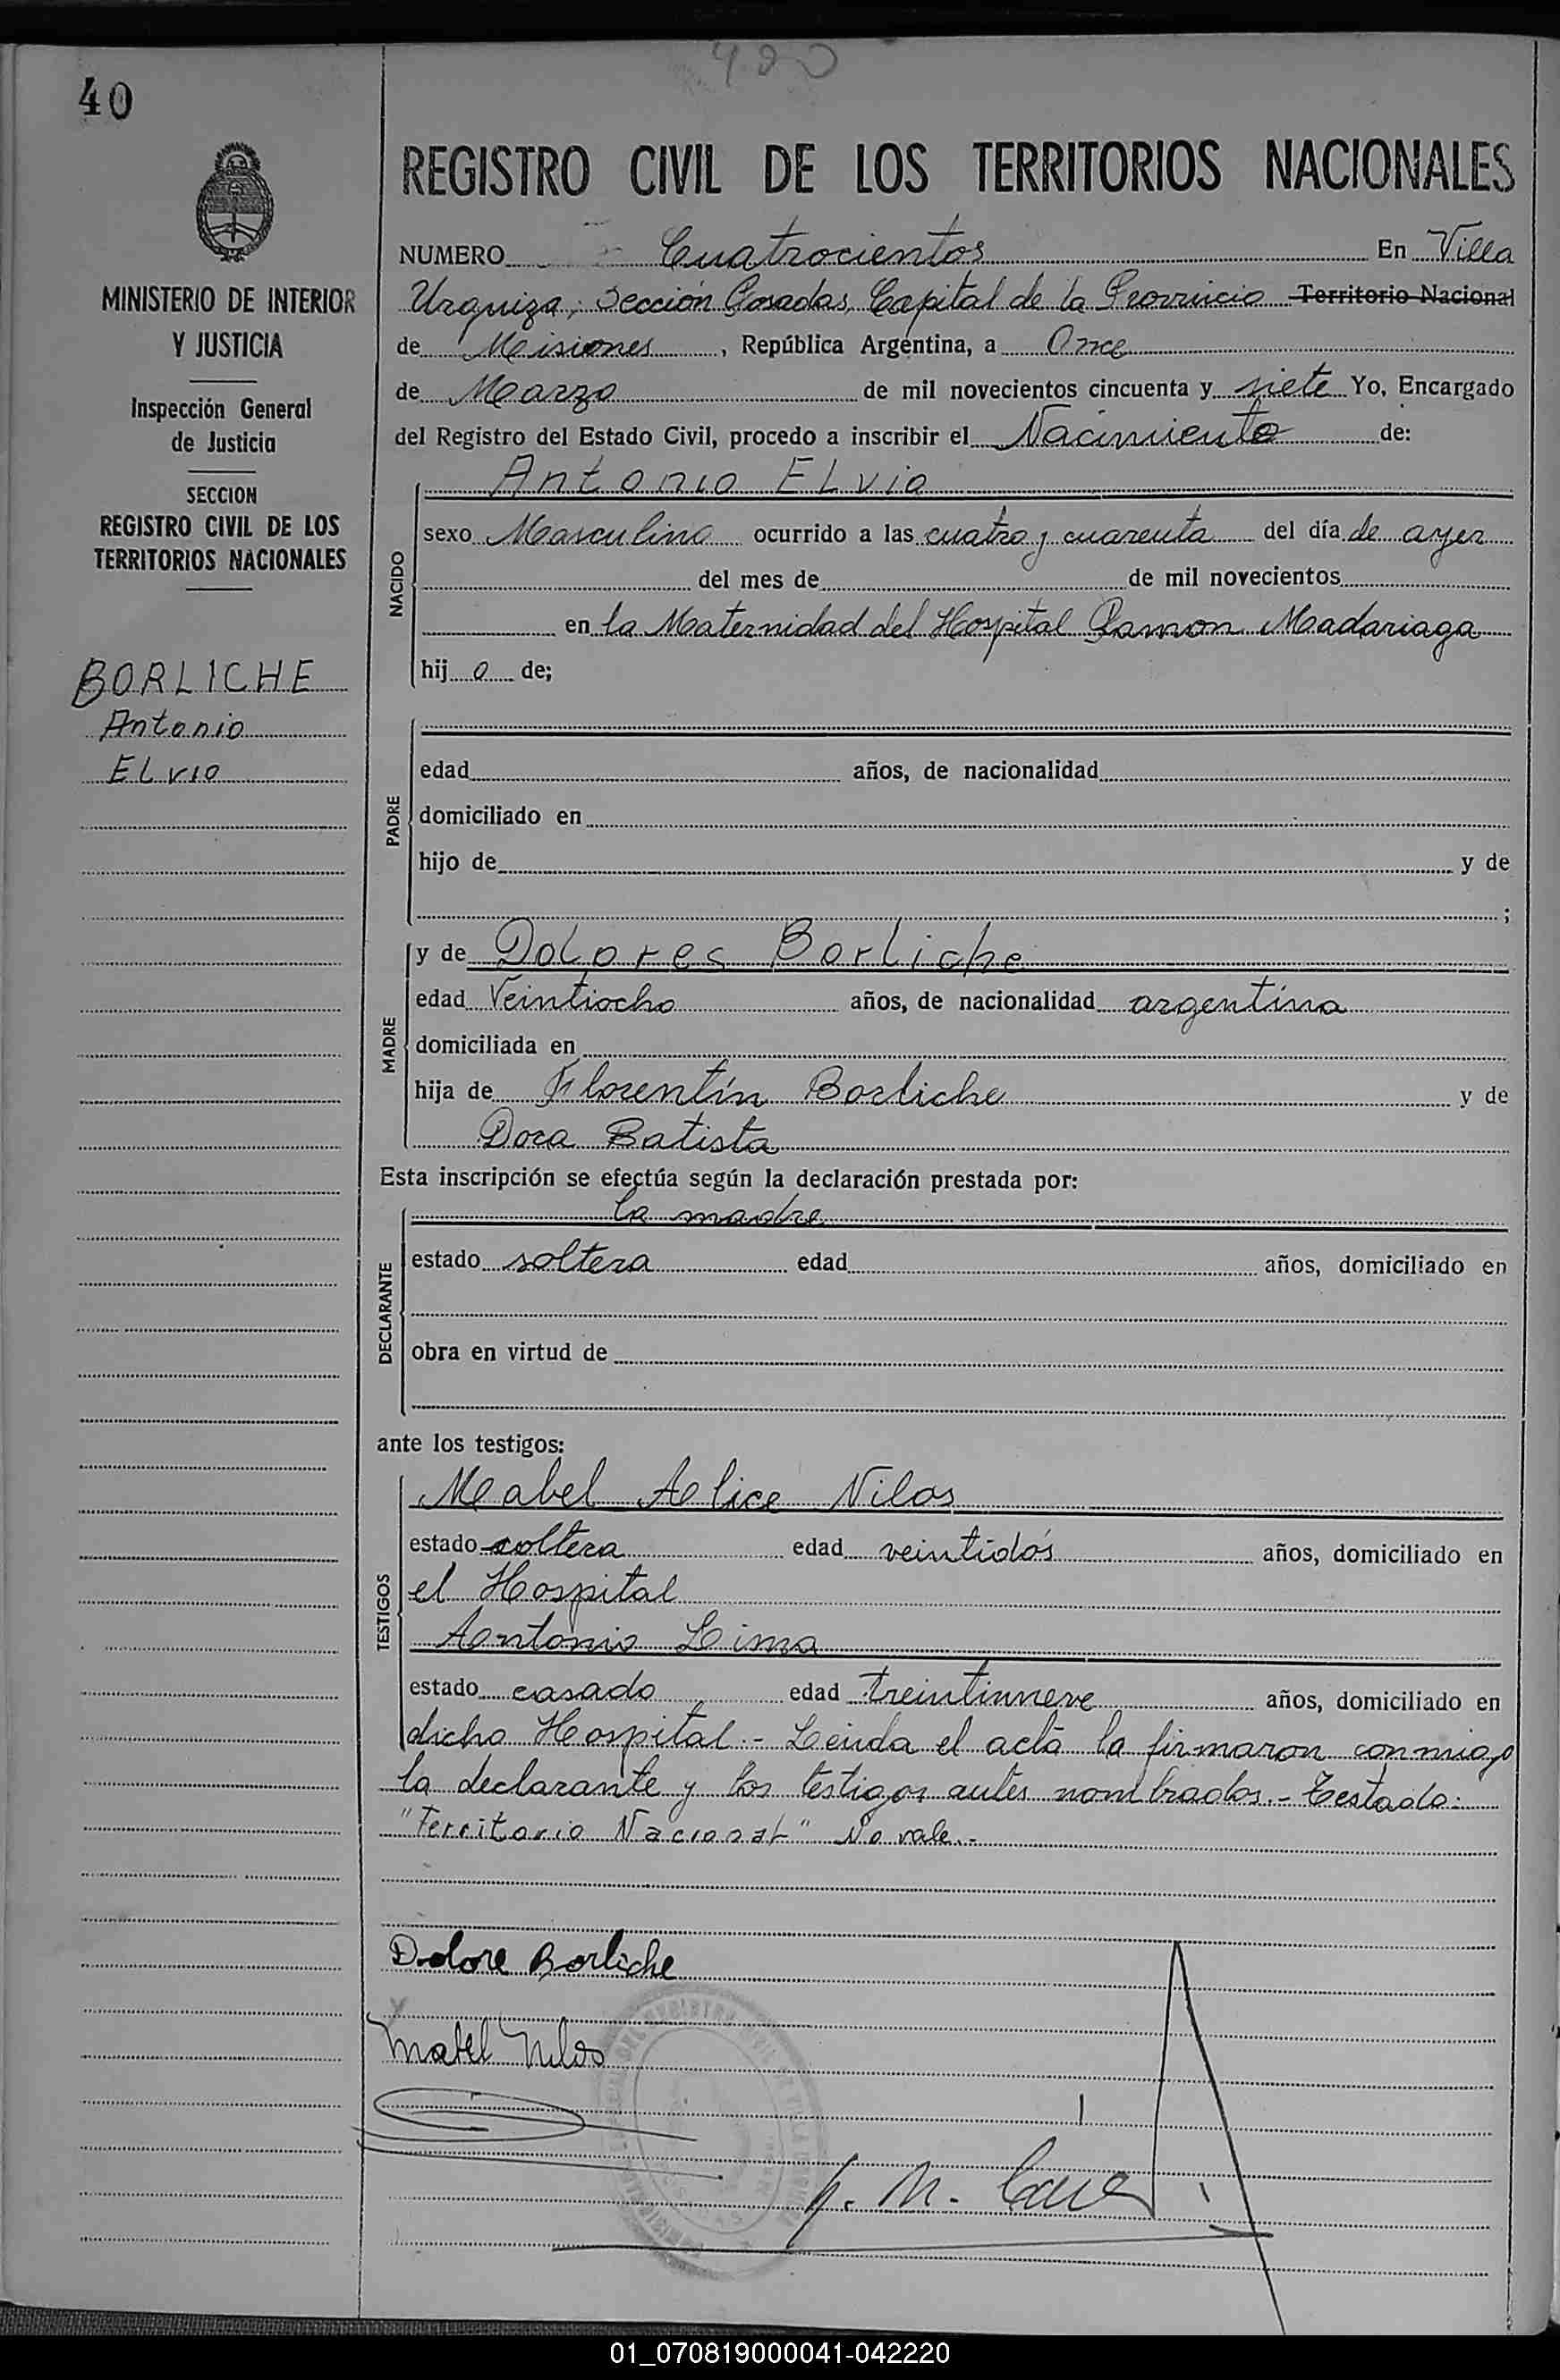 400
40
REGISTRO CIVIL DE LOS TERRITORIOS NACIONALES
NUMERO Cuatrocientos En Villa
Urquiza, Sección Posadas, Capital de la Provincia Territorio Nacional
de Misiones, República Argentina, a Once
de Marzo de mil novecientos cincuenta y siete Yo, Encargado
del Registro del Estado Civil, procedo a inscribir el Nacimiento de:
Antonio ELvio
NACIDO
sexo Masculino ocurrido a las cuatro y cuarenta del día de ayer
del mes de de mil novecientos
en la Maternidad del Hospital Ramon Madariaga
hij o de;
PADRE
edad años, de nacionalidad
domiciliado en
hijo de y de
;
MADRE
y de Dolores Borliche
edad Veintiocho años, de nacionalidad argentina
domiciliada en
hija de Florentín Borliche y de
Dora Batista
Esta inscripción se efectúa según la declaración prestada por:
la madre
DECLARANTE
estado soltera edad años, domiciliado en
obra en virtud de
ante los testigos:
TESTIGOS
Mabel Alice Nilos
estado soltera edad veintidós años, domiciliado en
el Hospital
Antonio Lima
estado casado edad treintinueve años, domiciliado en
dicho Hospital.- Leida el acta la firmaron conmigo
la declarante y los testigos antes nombrados.- Testado:
"Territorio Nacional" No vale.-
Dolore Borliche
Mabel Nilos
MINISTERIO DE INTERIOR
Y JUSTICIA
Inspección General
de Justicia
SECCION
REGISTRO CIVIL DE LOS
TERRITORIOS NACIONALES
BORLICHE
Antonio
ELvio
01_070819000041-042220